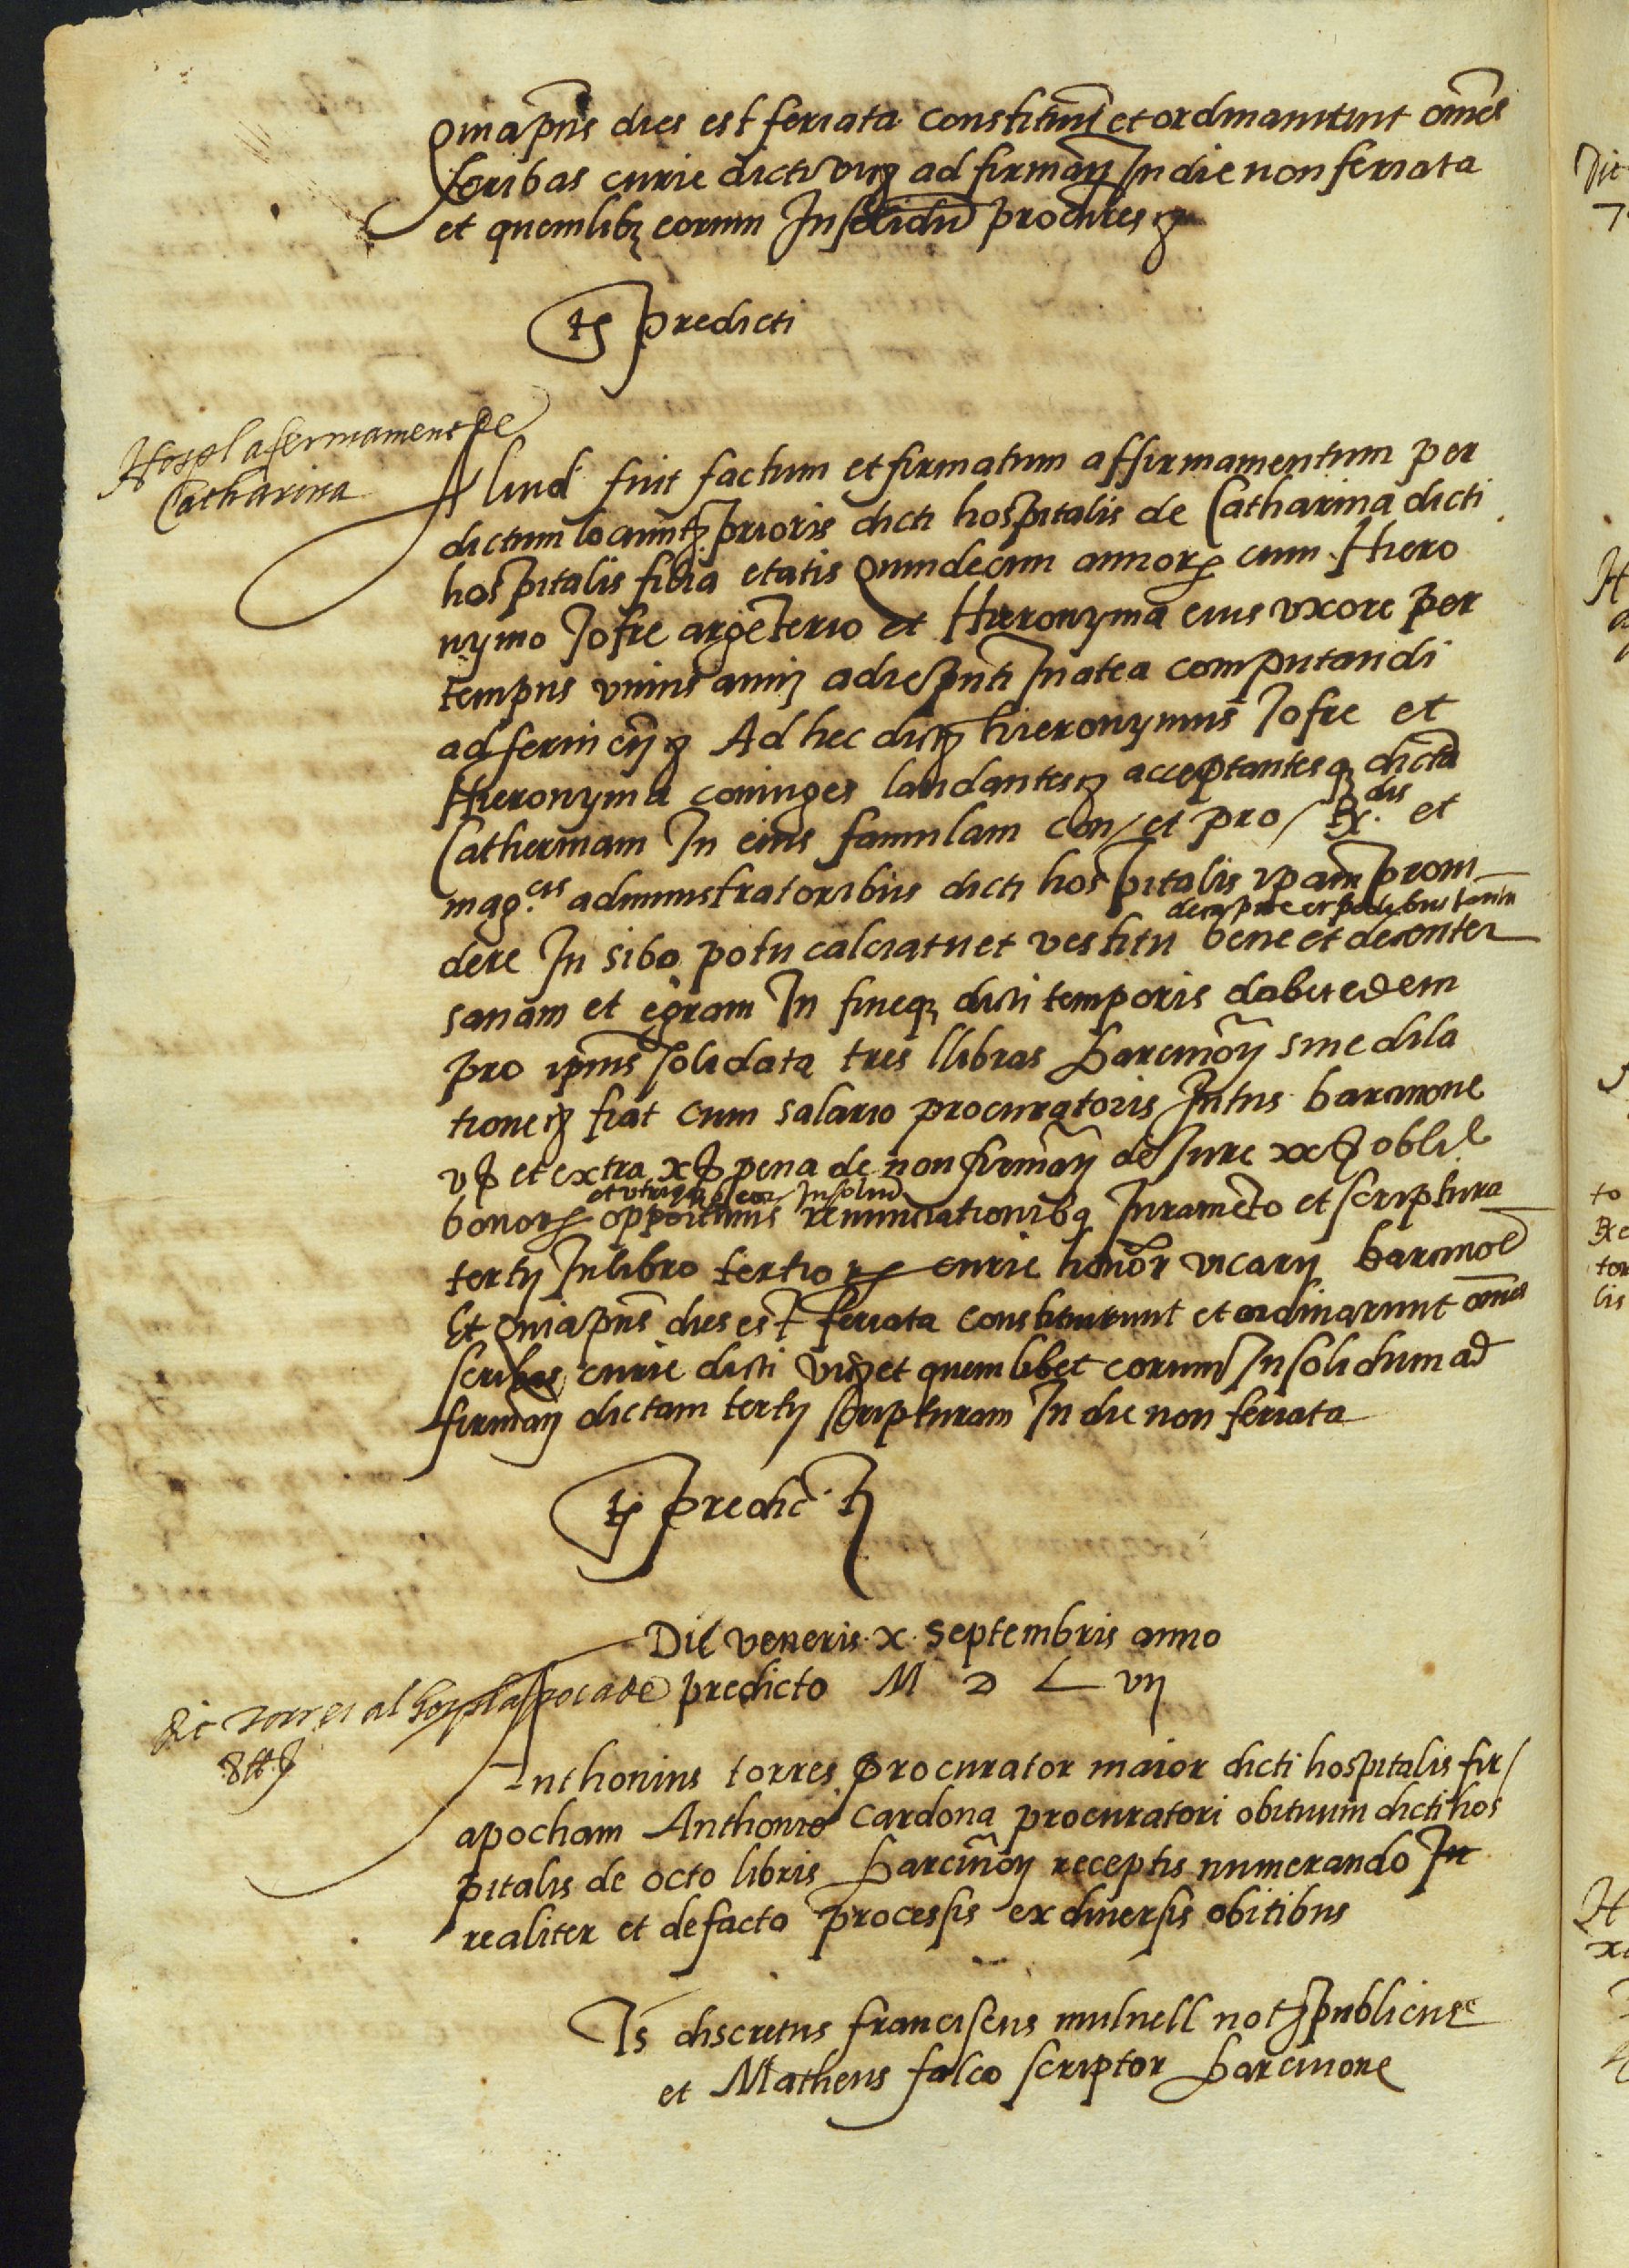 Quia pñs dies est feriata constituũt et ordinaverunt oẽs
scribas curie dicti vicȝ ad firmãdȝ In die non feriata
et quemlibȝ eorum In solidũ procures ȝ
ts predicti
Hospl afermament de
Catharina
Aliud fuit factum et firmatum affirmamentum per
dictum locumtȝ prioris dicti hospitalis de Catharina dicti
hospitalis filia etatis Quindecim annorȝ cum Hiero
nymo Jofre argẽterio et Hieronyma eius uxore per
tempus unius anni adie pñti In antea computandi
ad serviendȝ Ad hec dictȝ hieronymus Jofre et
Hieronyma coniuges laudantesȝ acceptantesqȝ dictã
Catherinam In eius famulam con/et pro/ Rx.dis et
mag.cis administratoribus dicti hospitalis ipam provi
de capite et pedibus tantũ
dere In sibo potu calciatu et vestitu bene et decenter
sanam et egram In fineqȝ dicti temporis dabit eidem
pro ipius solidata tres llibras barcinõn sine dila
tioneȝ fiat cum salario procuratoris Intus barcinone
vβ et extra xβ pena de non firmãdȝ de Jure xxβ obli.
et utriusqȝ eorȝ Insolidũ
bonorȝ opportunis renunciationibȝ Juramẽto et scriptura
tertij In libro tertiorȝ curie honor vicarij barcinoẽ
Et Quia pñs dies est feriata constituerunt et ordinarunt oẽs
scribas curie dicti vicȝ et quemlibet eorum In solidum ad
firmãdȝ dictam tertij scripturam In die non feriata
ts predicti
Die veneris x septembris anno
predicto M D L vij
De torres al hospl apoca de
8 ll β
Anthonius torres procurator maior dicti hospitalis fir/
apocham Anthonio Cardona procuratori obituum dicti hos
pitalis de octo libris barcinõn receptis numerando
realiter et defacto processis ex diversis obitibus
Ts discretus franciscus mulnell notȝ publicus
et Matheus falco scriptor barcinone